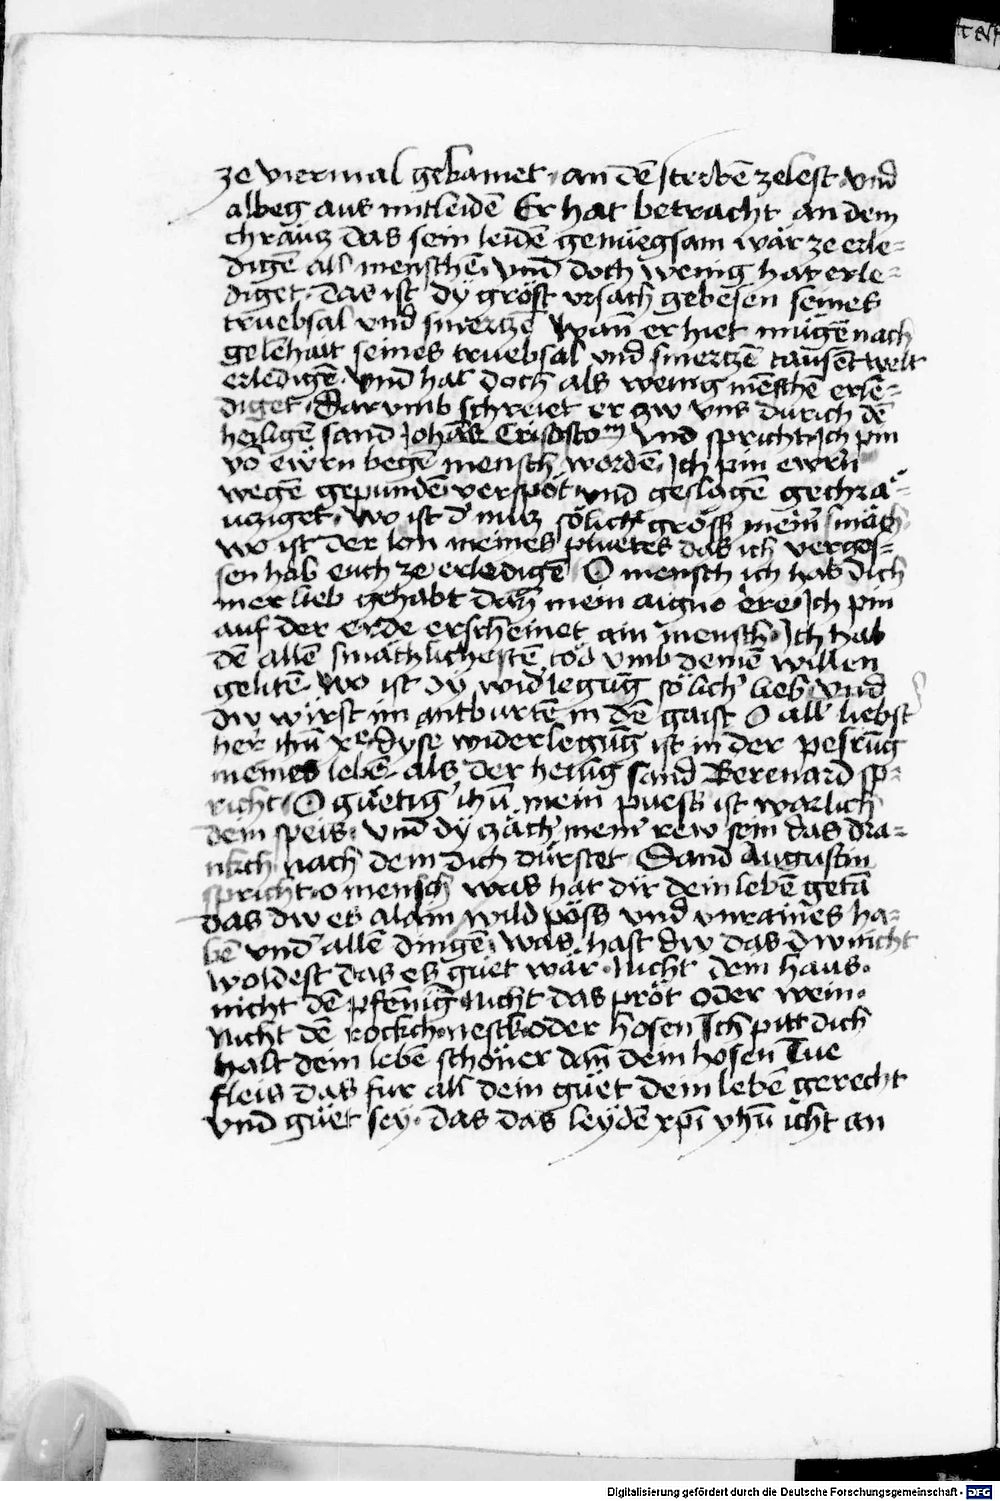 ze viermal gebainet · an dē sterbē zelest · vnd
albeg aus mitleidē Er hat betracht an dem
chräutz das sein leidē genüegsam wär ze erle=
digē all menschē · vnd doch wenig hat erle=
diget · das ist dÿ gröst vrsach gebesen seines
truebsal vnd smertzē Wan̄ er hiet mügē nach
gelēhait seines truebsal vnd smertzē tausēt welt
erledigē · vnd hat doch als wenig mēschē erle=
diget · Darvmb schreiet er zw vns durich dē
heiligē sand Johās Crisosto᷑m vnd spricht · Jch pin
vō ewrn begē mensch wordē · Jch pin ewrn
wegē gepundē verspöt · vnd geslagē gechrä=
utziget · wo ist d' nutz sölich' gröss mein' smäch ·
wo ist der lon meines pluetes das ich vergos=
sen hab euch ze erledigē O mensch ich hab dich
mer lieb gehabt dan̄ mein aigne ere · Jch pin
auf der erde erscheinet ain mensch · Jch hab
dē allē smächlichestē tod vmb deinē willen
gelitē · wo ist dÿ wid'legūg sölich' lieb · vnd
dw wirst im antburtē in dē gaist O all' liebst
her ihū xe · Dyse widerlegūg ist in der pesrūg
meines lebē · als der heilig sand Berenard sp=
richt · O güetig' ihū mein puess ist warlich
dein speis · vnd dÿ zäch' mein' rew sein das dra=
nkch nach dem dich dürstet Sand Augustin
spricht · o mensch was hat dir dein lebē getā
das dw es alain wild pöss vnd vnraines ha=
bē vnd' allē dingē · was hast dw das dw nicht
woldest das es guet wär · Nicht dein haus ·
nicht dē pfēnig · Nicht das pröt oder wein ·
Nicht dē rockch · nestk · oder hosen Jch pitt dich
halt dein lebē schöner dan̄ dein hosen Tue
fleis das fur all dein güet dein lebē gerecht
vnd güet sey · das das leydē xp̄i yhū icht an
Digitalisierung gefördert durch die Deutsche Forschungsgemeinschaft - DFG